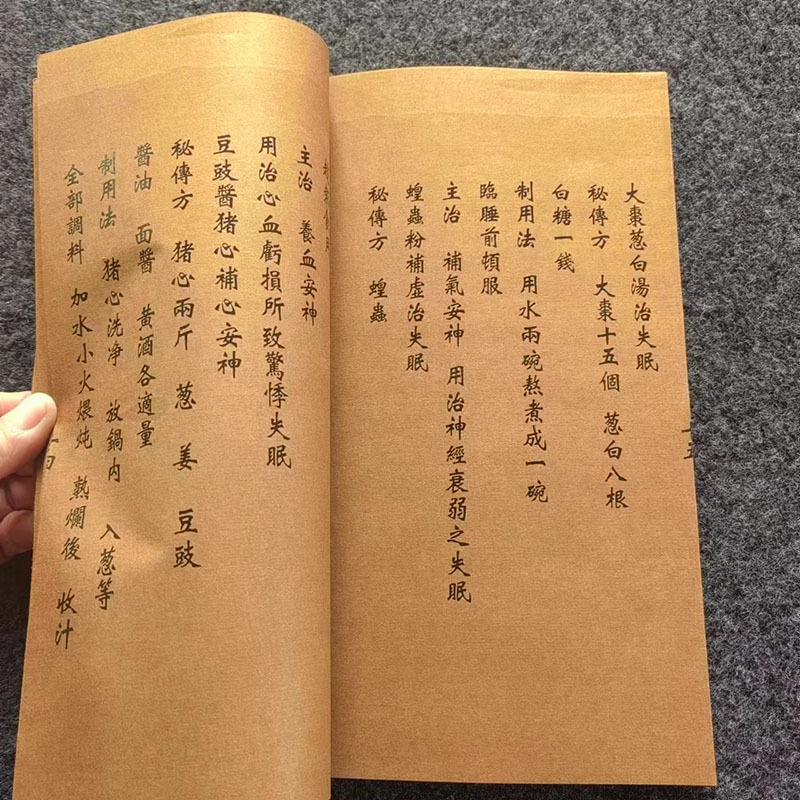 大棗葱白湯治失眠
秘傳方 大棗十五個 葱白八根
白糖一錢
制用法 用水兩碗熬煮成一碗
臨睡前頓服
主治 補氣安神 用治神經衰弱之失眠
蝗蟲粉補虛治失眠
秘傳方 蝗蟲
主治 養血安神
用治心血虧損所致驚悸失眠
豆豉醬猪心補心安神
秘傳方 猪心兩斤 葱 姜 豆豉
醬油 面醬 黄酒各適量
制用法 猪心洗净 放鍋内 入葱等
全部調料 加水小火煨炖 熟爛後 收汁